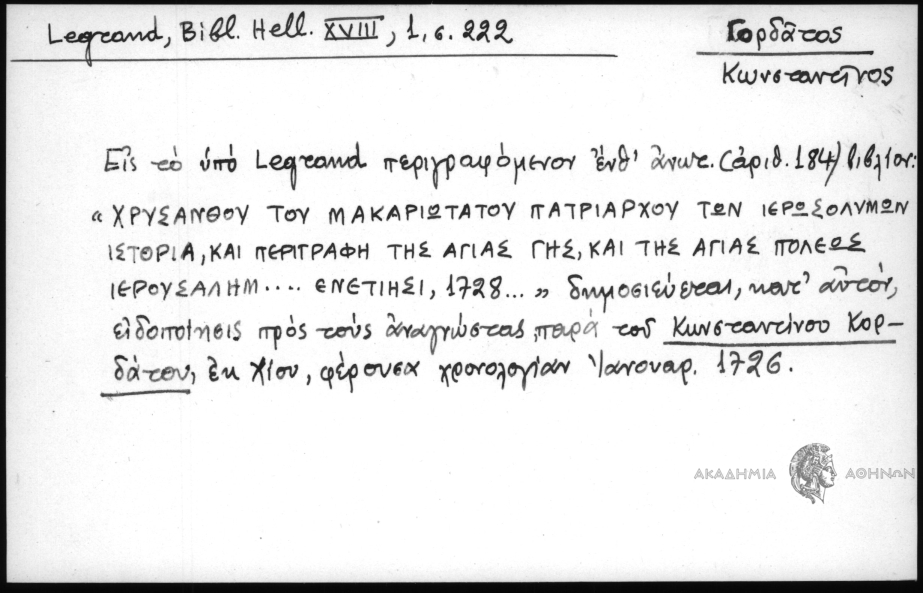 Legrand, Bibl. Hell. XVIII, 1, σ. 222
Γορδᾶτος
Κωνσταντῖνος
Εἰς τὸ ὑπό Legrand περιγραφόμενον ἔνθ' ἀνωτ. (ἀριθ. 184) βιβλίον:
"ΧΡΥΣΑΝΘΟΥ ΤΟΥ ΜΑΚΑΡΙΩΤΑΤΟΥ ΠΑΤΡΙΑΡΧΟΥ ΤΩΝ ΙΕΡΩΣΟΛΥΜΩΝ
ΙΣΤΟΡΙΑ, ΚΑΙ ΠΕΡΙΓΡΑΦΗ ΤΗΣ ΑΓΙΑΣ ΓΗΣ, ΚΑΙ ΤΗΣ ΑΓΙΑΣ ΠΟΛΕΩΣ
ΙΕΡΟΥΣΑΛΗΜ.... ΕΝΕΤΙΗΣΙ, 1728..." δημοσιεύεται, κατ' αὐτόν,
εἰδοποίησις πρὸς τοὺς ἀναγνώστας, παρά τοῦ Κωνσταντίνου Κορ-
δάτου, ἐκ Χίου, φέρουσα χρονολογίαν Ἰανουαρ. 1726.
ΑΚΑΔΗΜΙΑ ΑΘΗΝΩΝ